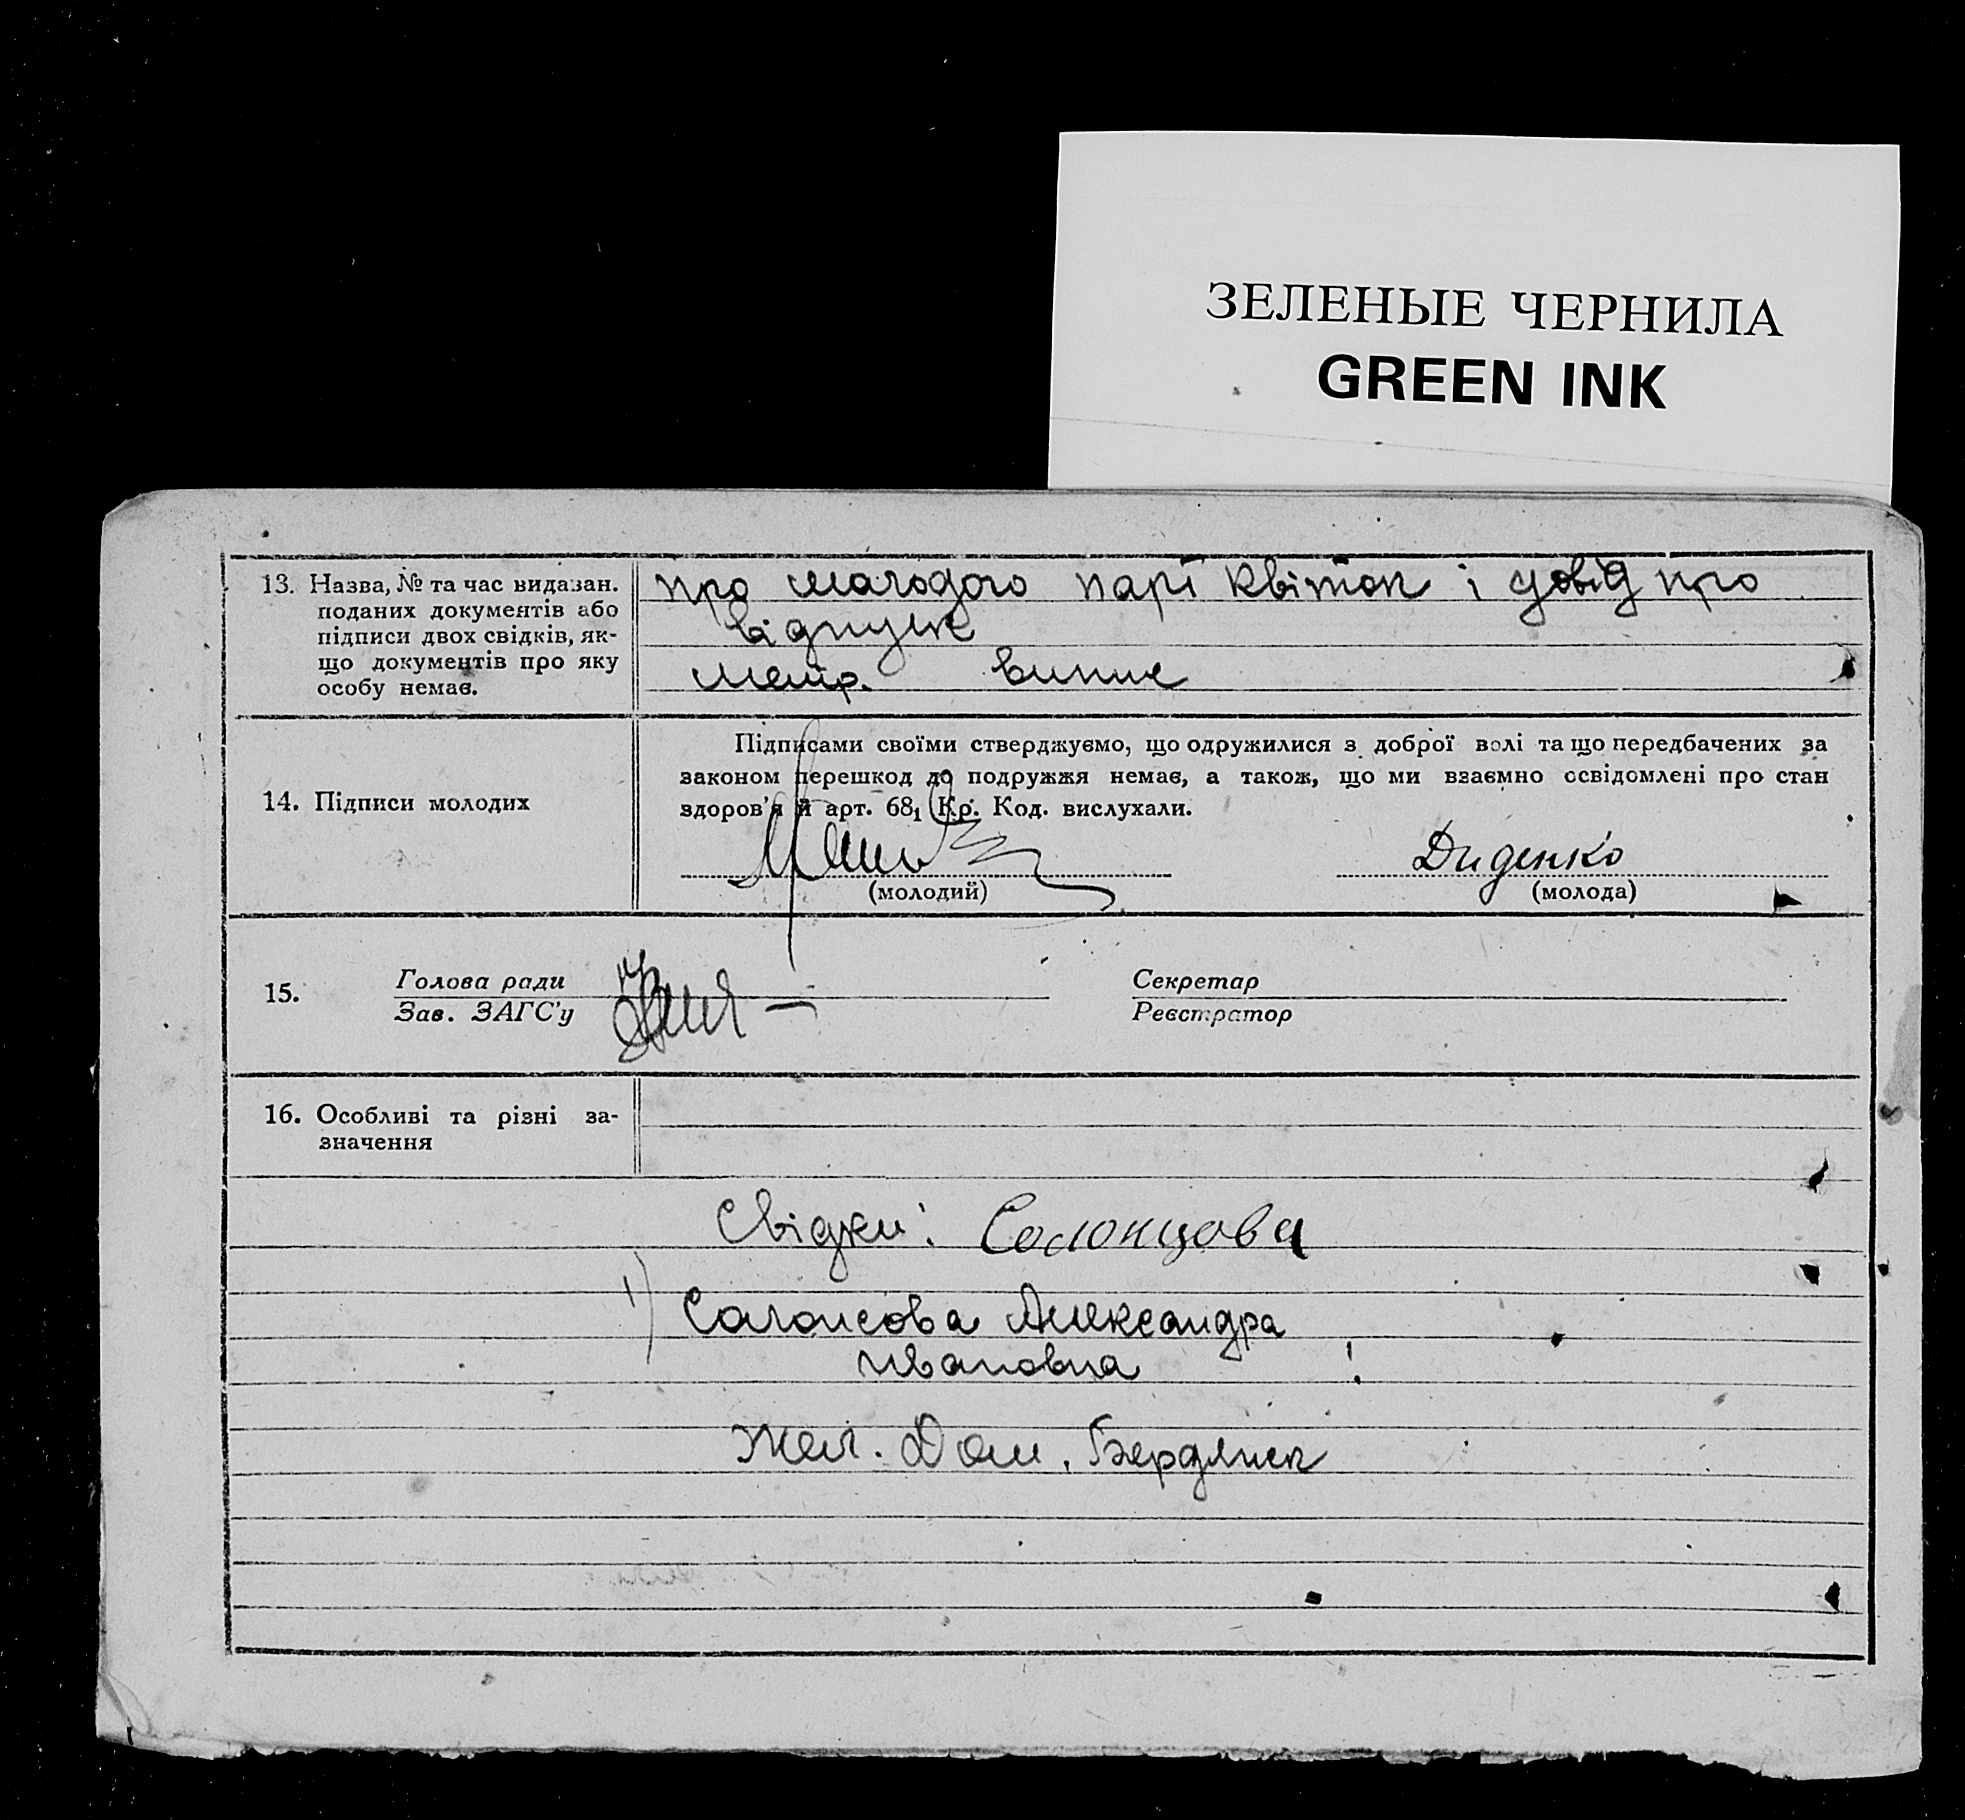 ЗЕЛЕНЫЕ ЧЕРНИЛА
GREEN INK
13. Назва, № та час видазан.
поданих документів або
підписи двох свідків, як-
що документів про яку
особу немає.
про молодого парт квіток і довід про
відпуск
метр. випис
14. Підписи молодих
Підписами своїми стверджуємо, що одружилися з доброї волі та що передбачених за
законом перешкод до подружжя немає, а також, що ми взаємно освідомлені про стан
здоров'я й арт. 68₁ Кр. Код. вислухали.
Диденко
(молодий) (молода)
15. Голова ради
Зав. ЗАГС'у
Секретар
Реєстратор
16. Особливі та різні за-
значення
Свідки: Солонцова
1) Солонсова Александра
Ивановна
Жел. Дом. Бердянск